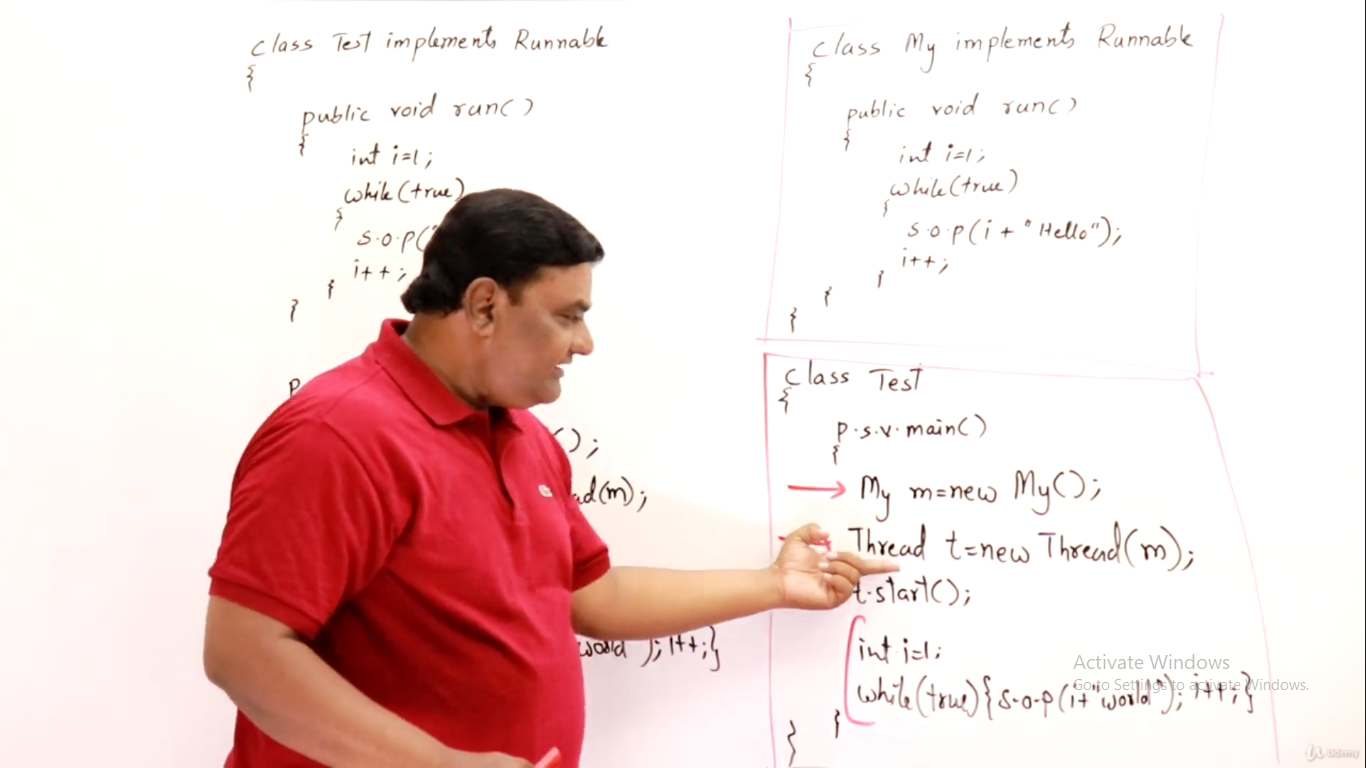 class Test implements Runnable
{
public void run()
{
int i=1;
while(true)
{
s.o.p(
i++;
}
}
();
ad(m);
world"); i++;}
class My implements Runnable
{
public void run()
{
int i=1;
while(true)
{
s.o.p(i + "Hello");
i++;
}
}
}
class Test
{
p.s.v.main()
{
My m=new My();
Thread t=new Thread(m);
t.start();
int i=1;
while(true){s.o.p(i+"world"); i++;}
}
}
Activate Windows
Go to Settings to activate Windows.
Udemy